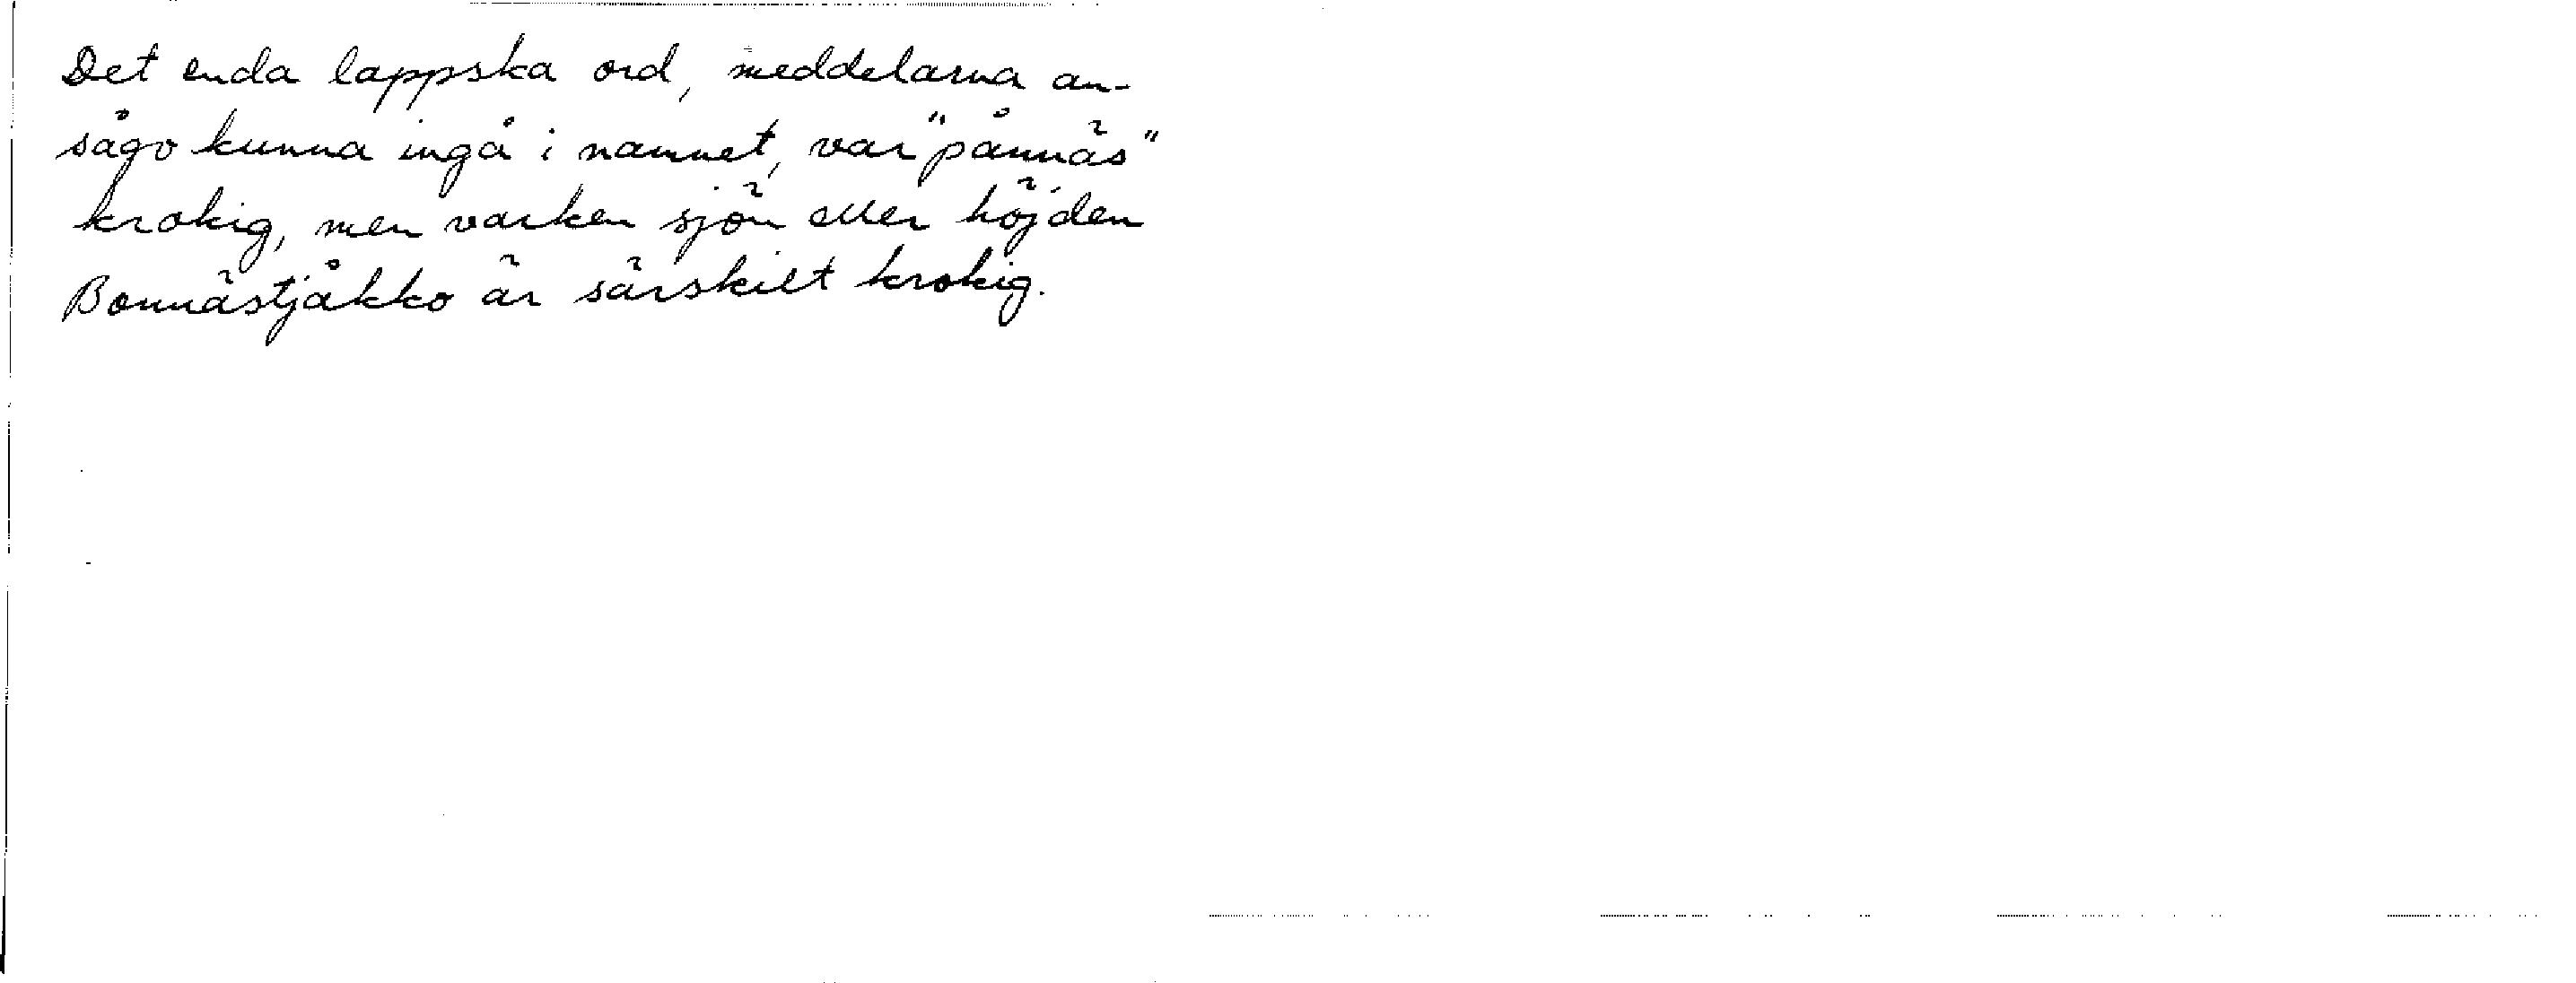 Det enda lappska ord, meddelarna an-
sågo kunna ingå i namnet, var "pånnäs"
krokig, men varken sjön eller höjden
Bonnästjåkko är särskilt krokig.